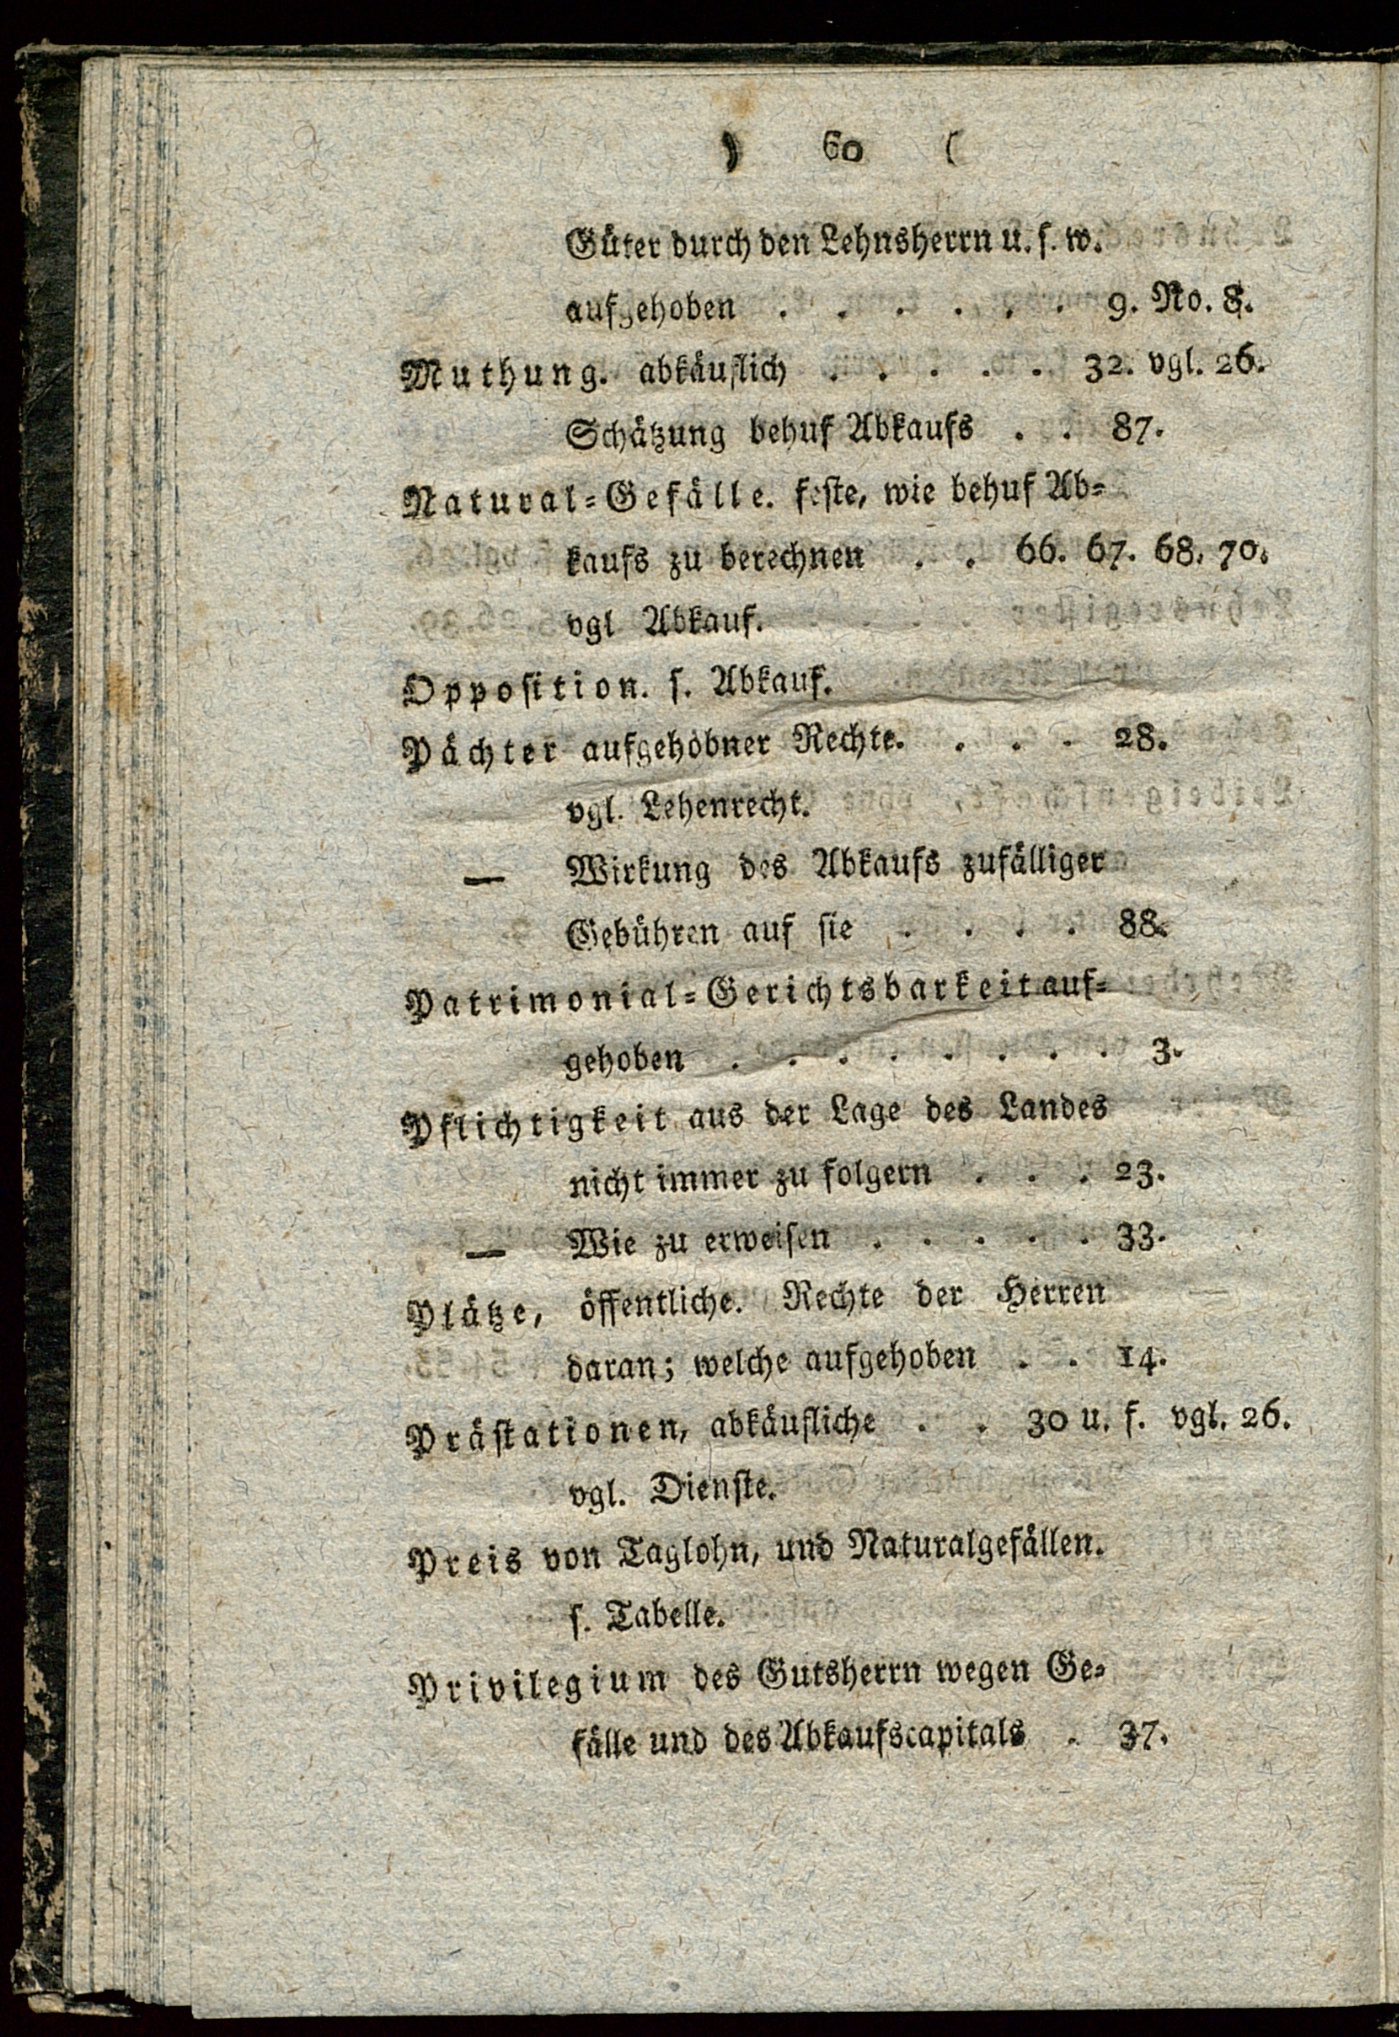 ) 60 (
Güter durch den Lehnsherrn u. s. w.
aufgehoben . . . . . . 9. No. 8.
Muthung. abkäuflich . . . . . 32. vgl. 26.
Schätzung behuf Abkaufs . . 87.
Natural=Gefälle. feste, wie behuf Ab=
kaufs zu berechnen . . 66. 67. 68. 70.
vgl Abkauf.
Opposition. s. Abkauf.
Pächter aufgehobner Rechte. . . . 28.
vgl. Lehenrecht.
— Wirkung des Abkaufs zufälliger
Gebühren auf sie . . . . 88.
Patrimonial=Gerichtsbarkeit auf=
gehoben . . . . . . . . 3.
Pflichtigkeit aus der Lage des Landes
nicht immer zu folgern . . . 23.
— Wie zu erweisen . . . . . 33.
Plätze, öffentliche. Rechte der Herren
daran; welche aufgehoben . . 14.
Prästationen, abkäufliche . . 30 u. f. vgl. 26.
vgl. Dienste.
Preis von Taglohn, und Naturalgefällen.
s. Tabelle.
Privilegium des Gutsherrn wegen Ge=
fälle und des Abkaufscapitals . 37.